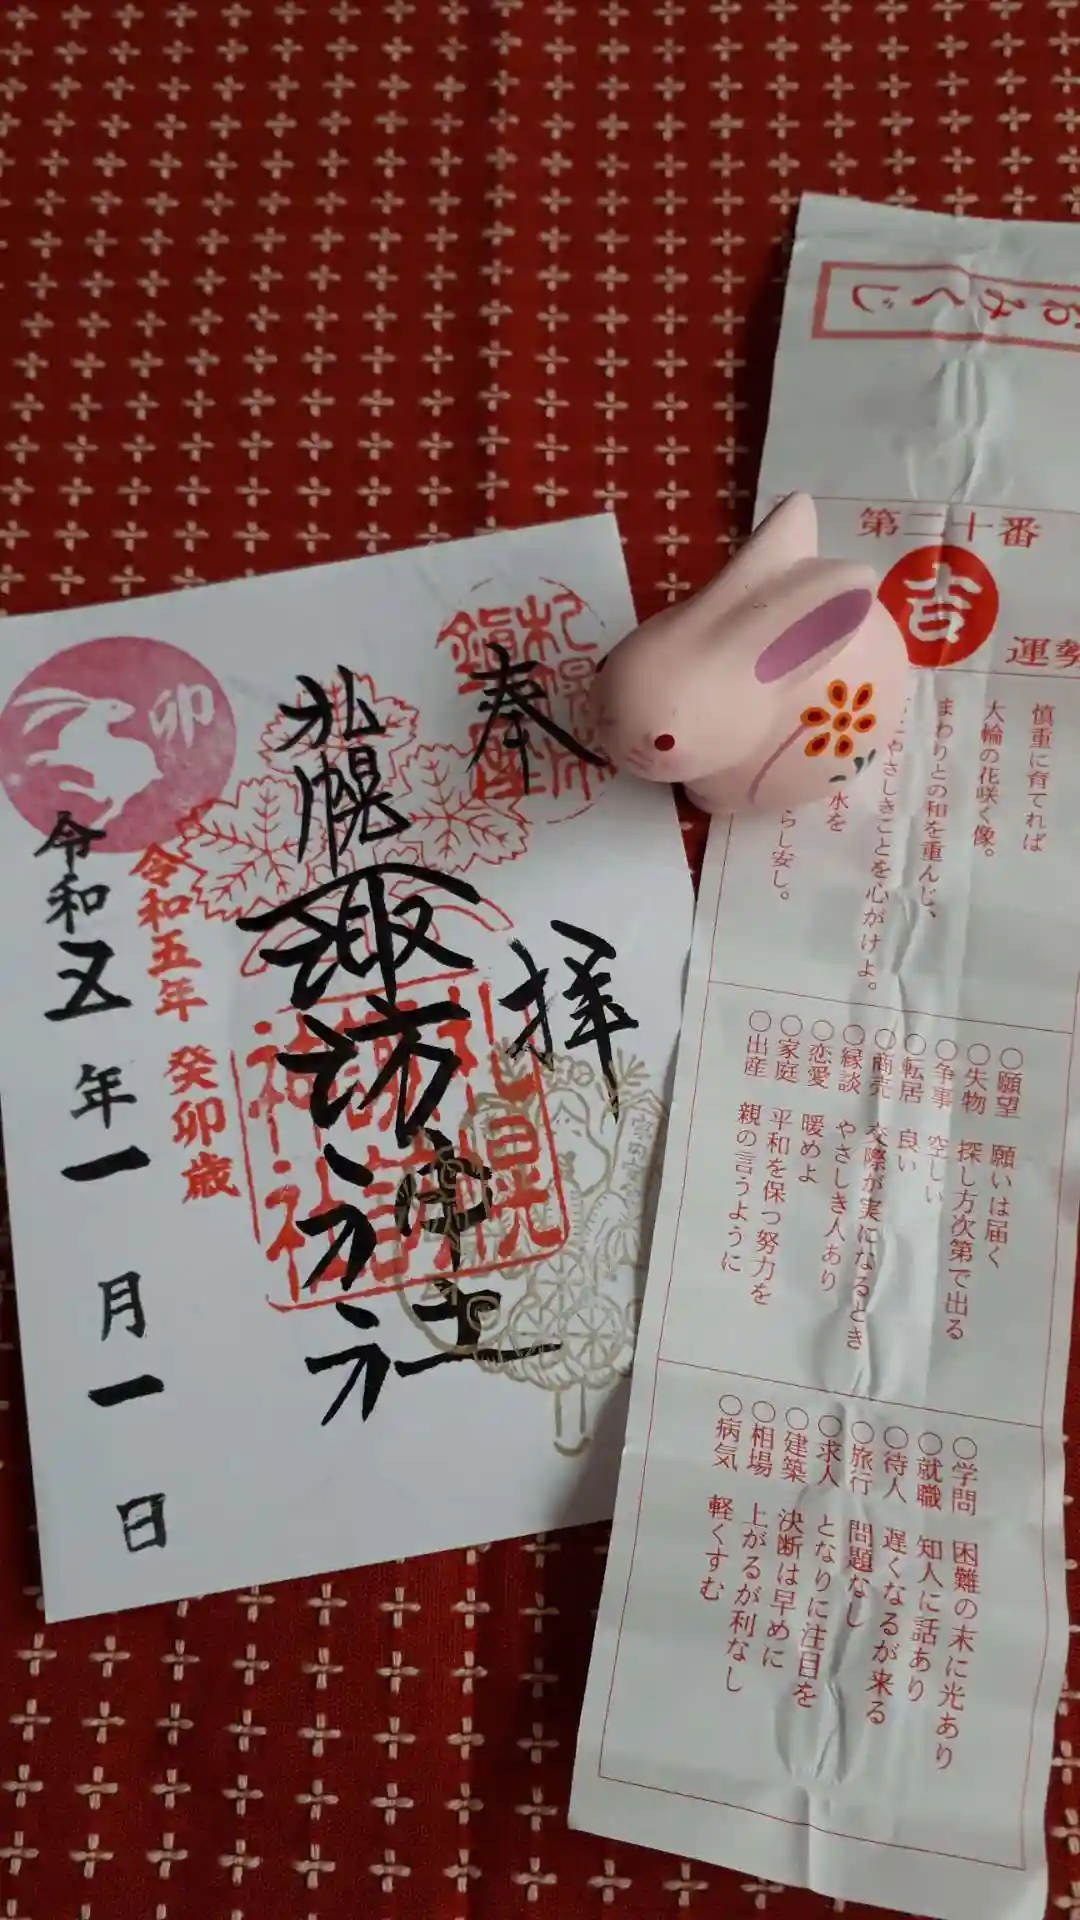 奉拝
札幌諏訪神社
札幌諏訪神社
卯
令和五年 癸卯歳
令和五年一月一日
おみくじ
第二十番
吉
運勢
慎重に育てれば
大輪の花咲く像。
まわりとの和を重んじ、
やさしきことを心がけよ。
水を
らし安し。
○願望 願いは届く
○失物 探し方次第で出る
○争事 空しい
○転居 良い
○商売 交際が実になるとき
○縁談 やさしき人あり
○恋愛 暖めよ
○家庭 平和を保つ努力を
○出産 親の言うように
○学問 困難の末に光あり
○就職 知人に話あり
○待人 遅くなるが来る
○旅行 問題なし
○求人 となりに注目を
○建築 決断は早めに
○相場 上がるが利なし
○病気 軽くすむ